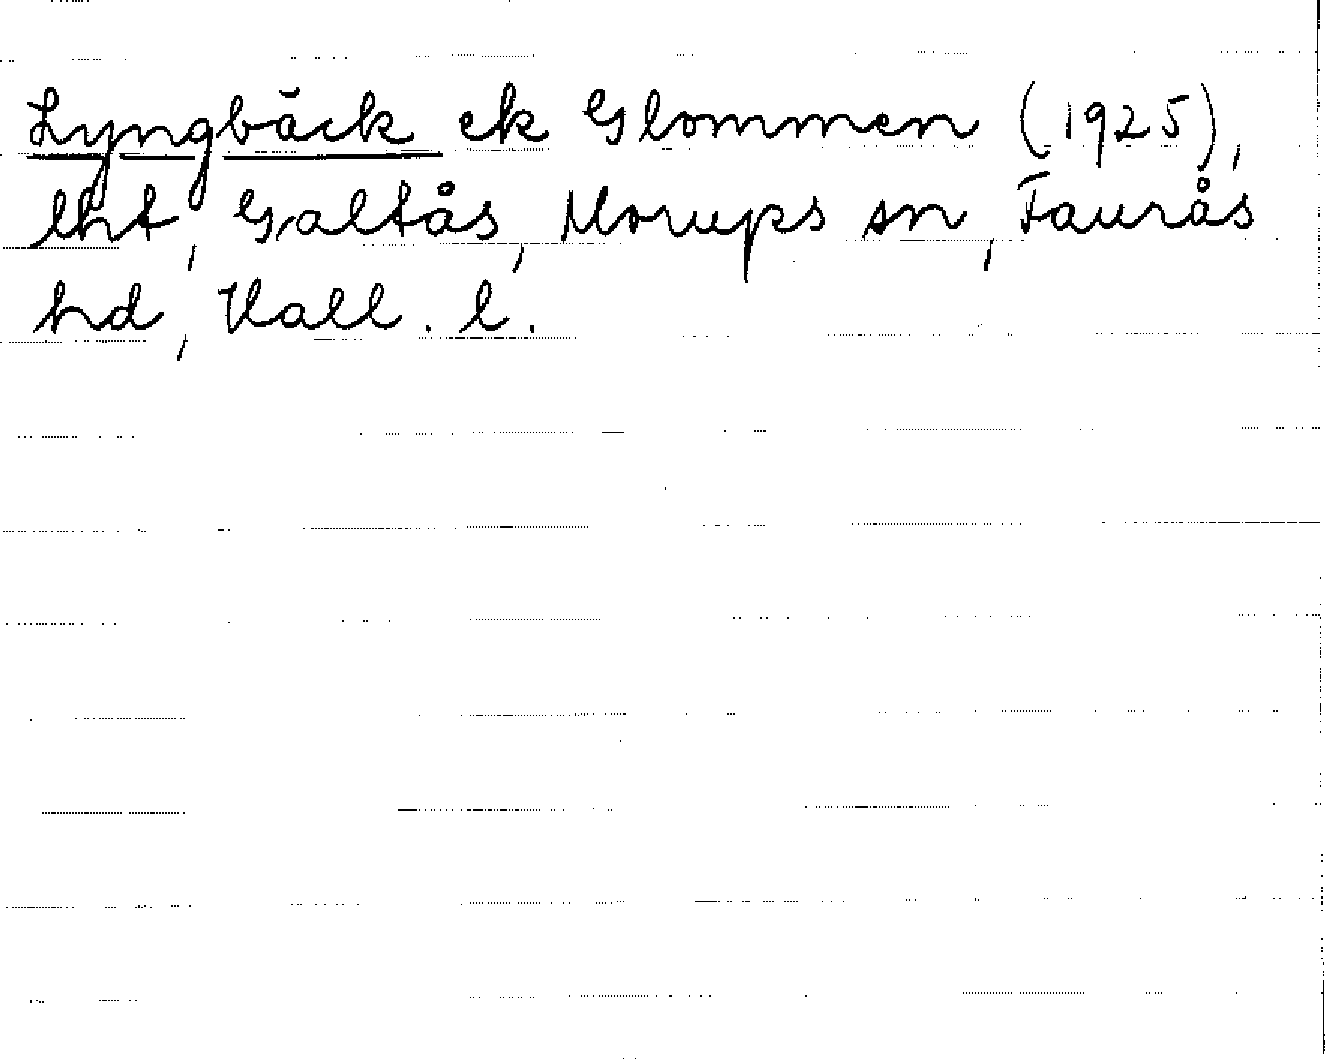 Lyngbäck ek Glommen (1925),
lht, Galtås, Morups sn, Faurås
hd, Hall. l.